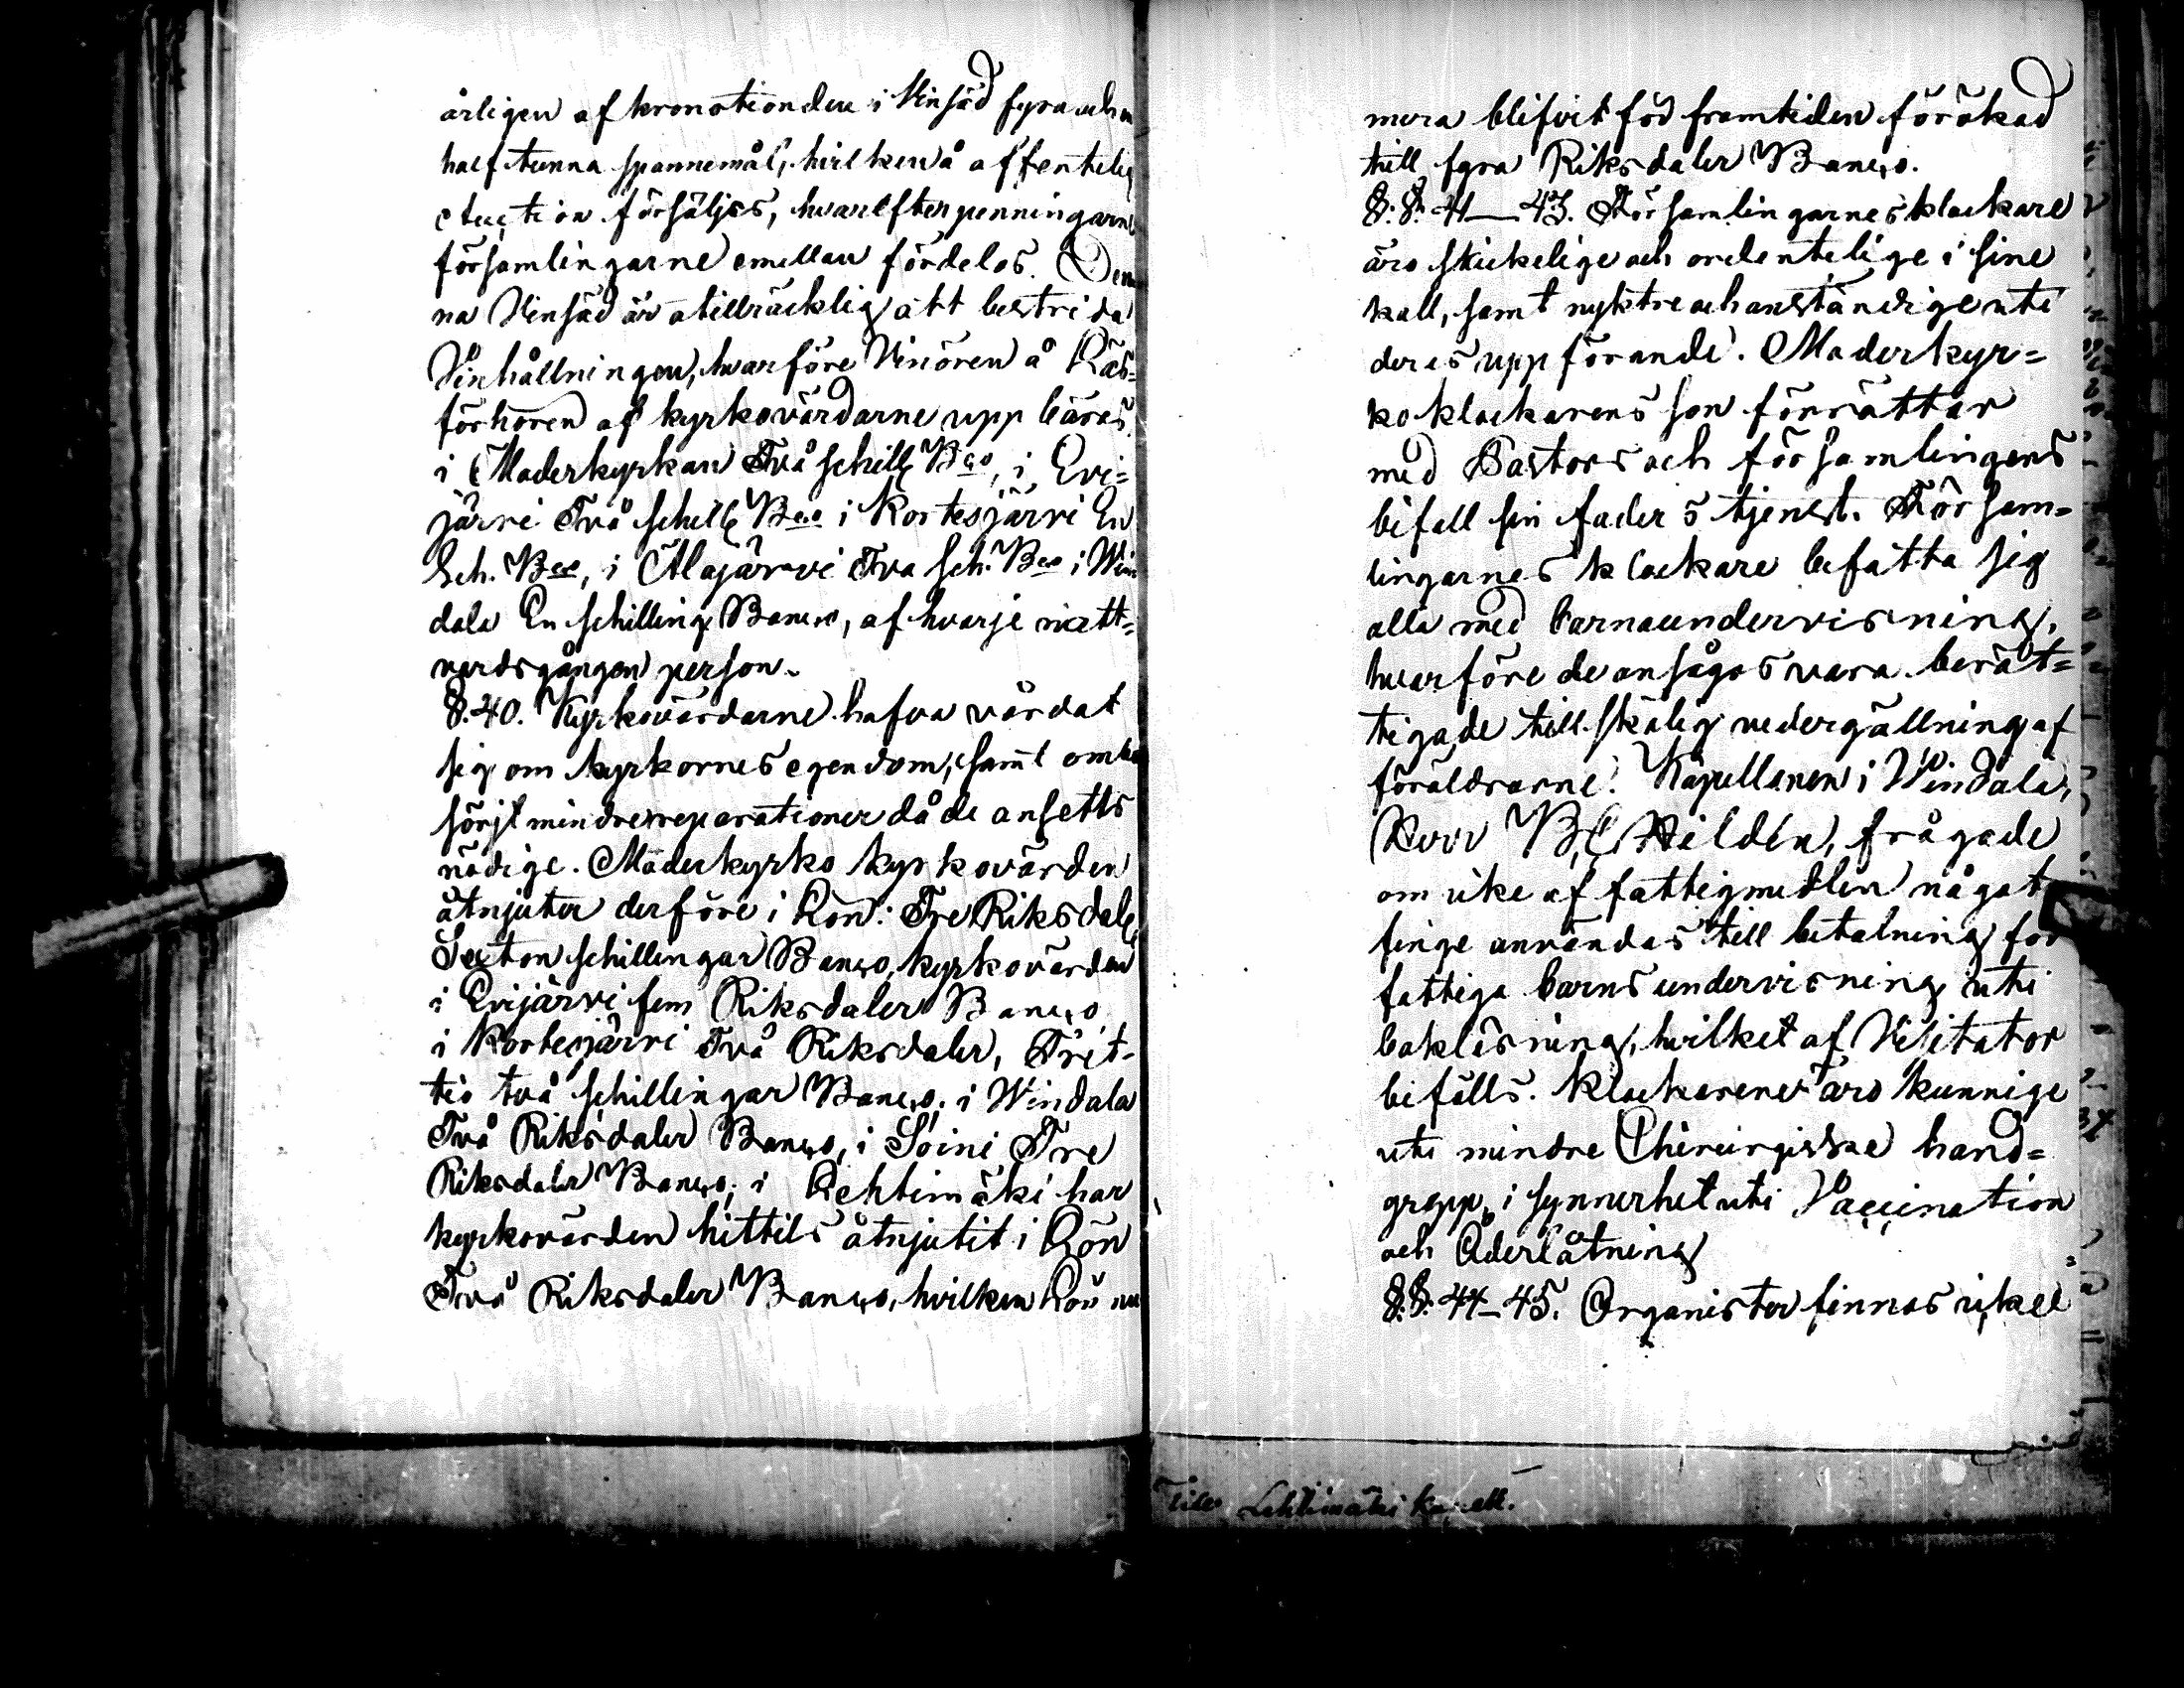 årligen af kronotionden i Vinsäd fyra och en
half tunna spannemål, hvilken å offentelig
auction försäljes, hvarefter penningarne
församlingarne emellan fördelas. Den
na Vinsäd är otillräcklig att bestrida
Vinhållningen, hvarföre Vinören å Läs=
förhören af kyrkovärdarne uppbäras.
i Moderkyrkan Två schill Bco, i Evi=
järvi Två schill Bco i Kortesjärvi En
Sch. Bco, i Alajärvi Två sch. Bco i Win
dala En schilling Banco, af hvarje natt=
vardsgången person.
§. 40. Kyrkovärdarne hafva vårdat
sig om kyrkornes egendom, samt om
sörjt mindre reparationer då de ansetts
nödige. Moderkyrko kyrkovärden
åtnjuter derföre i Lön: Tre Riksdaler
Sexton schillingar Banco, kyrkovärden
i Evijärvi fem Riksdaler Banco
i Kortesjärvi Två Riksdaler, Tret=
tio två schillingar Banco. i Windala
Två Riksdaler Banco, i Soini Tre
Riksdaler Banco; i Lehtimäki har
kyrkovärden hittils åtnjutit i Lön
Två Riksdaler Banco, hvilken Lön nu
mera blifvit för framtiden förökad
till fyra Riksdaler Banco.
§. §. 41—43. Församlingarnes klockare
äro skickelige och ordentelige i sine
kall, samt nyktre och anständige uti
deres uppförande. Moderkyr=
ko klockarens son förrättar
med Pastors och församlingens
bifall sin faders tjenst. Försam=
lingarnes klockare befatta sig
alla med barnaundervisning,
hvarföre de ansågos vara berät=
tigade till skälig vedergällning af
föräldrarne. Kapellanen i Windala,
Herr B. Hildén, frågade
om icke af fattigmedlen något
finge användas till betalning för
fattiga barns undervisning uti
bokläsning, hvilket af Visitator
bifölls. Klockarene äro kunnige
uti mindre Chirurgiska hand=
grepp, i synnerhet uti Vaccination
och Åderlåtning
§. §. 44—45. Organister finnas icke
Till Lehtimäki kapell.